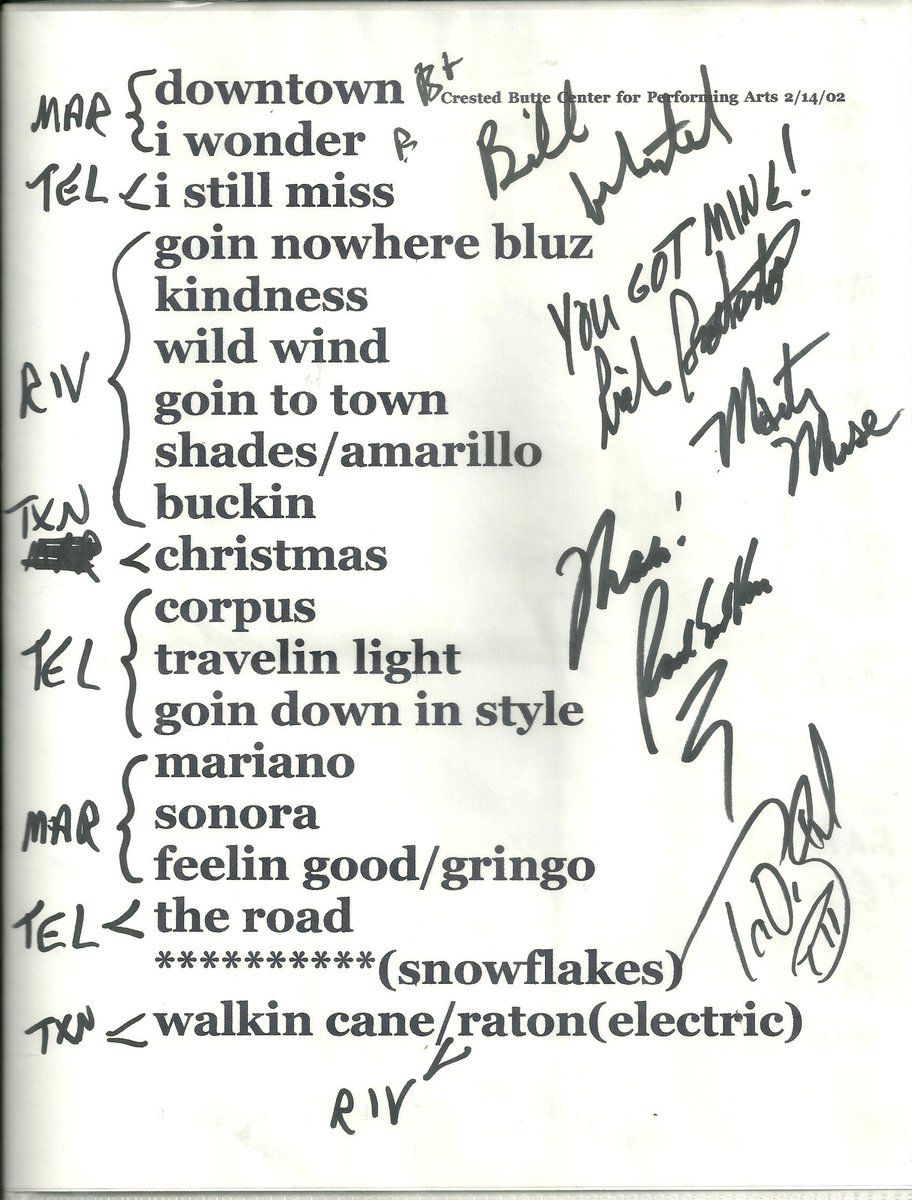 downtown B+ Crested Butte Center for Performing Arts 2/14/02
MAR
i wonder B
TEL < i still miss
Bill
goin nowhere bluz
YOU GOT MINE!
kindness
wild wind
RIV
goin to town
Marty
Muse
shades/amarillo
TXN
buckin
< christmas
corpus
TEL
travelin light
goin down in style
mariano
MAR
sonora
feelin good/gringo
TEL < the road
**********(snowflakes)
TXN < walkin cane/raton(electric)
RIV